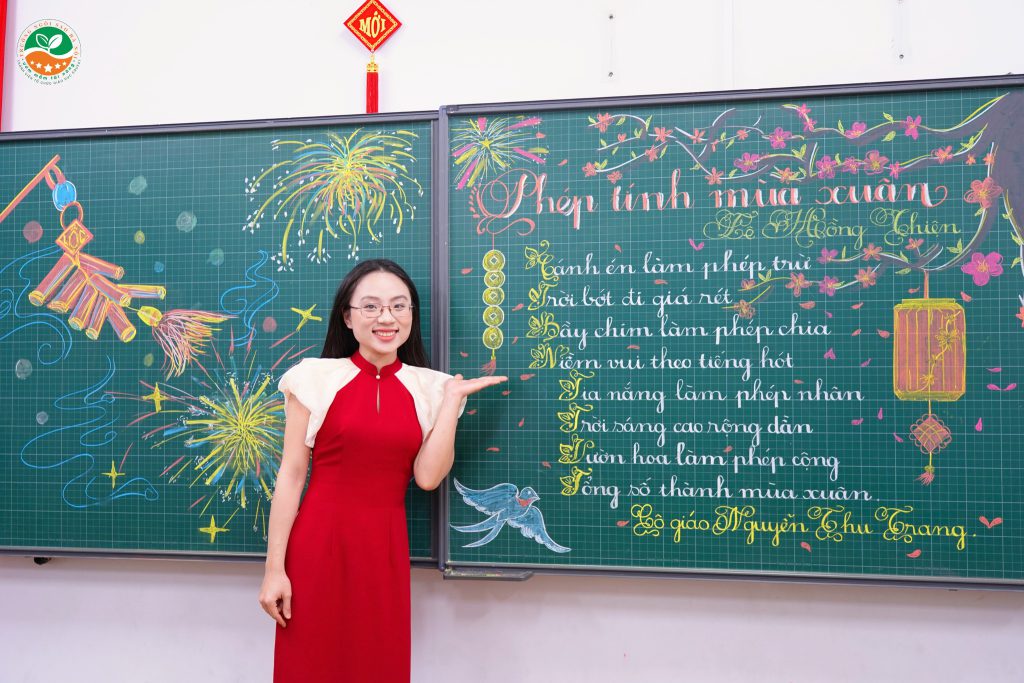 TRƯỜNG NGÔI SAO HÀ NỘI
ươm mầm tài năng
MỚI
Phép tính mùa xuân
Tô Hồng Thiên
Cánh én làm phép trừ
Trời bớt đi giá rét
Bầy chim làm phép chia
Niềm vui theo tiếng hót
Tia nắng làm phép nhân
Trời sáng cao rộng dần
Vườn hoa làm phép cộng
Tổng số thành mùa xuân.
Cô giáo Nguyễn Thu Trang.